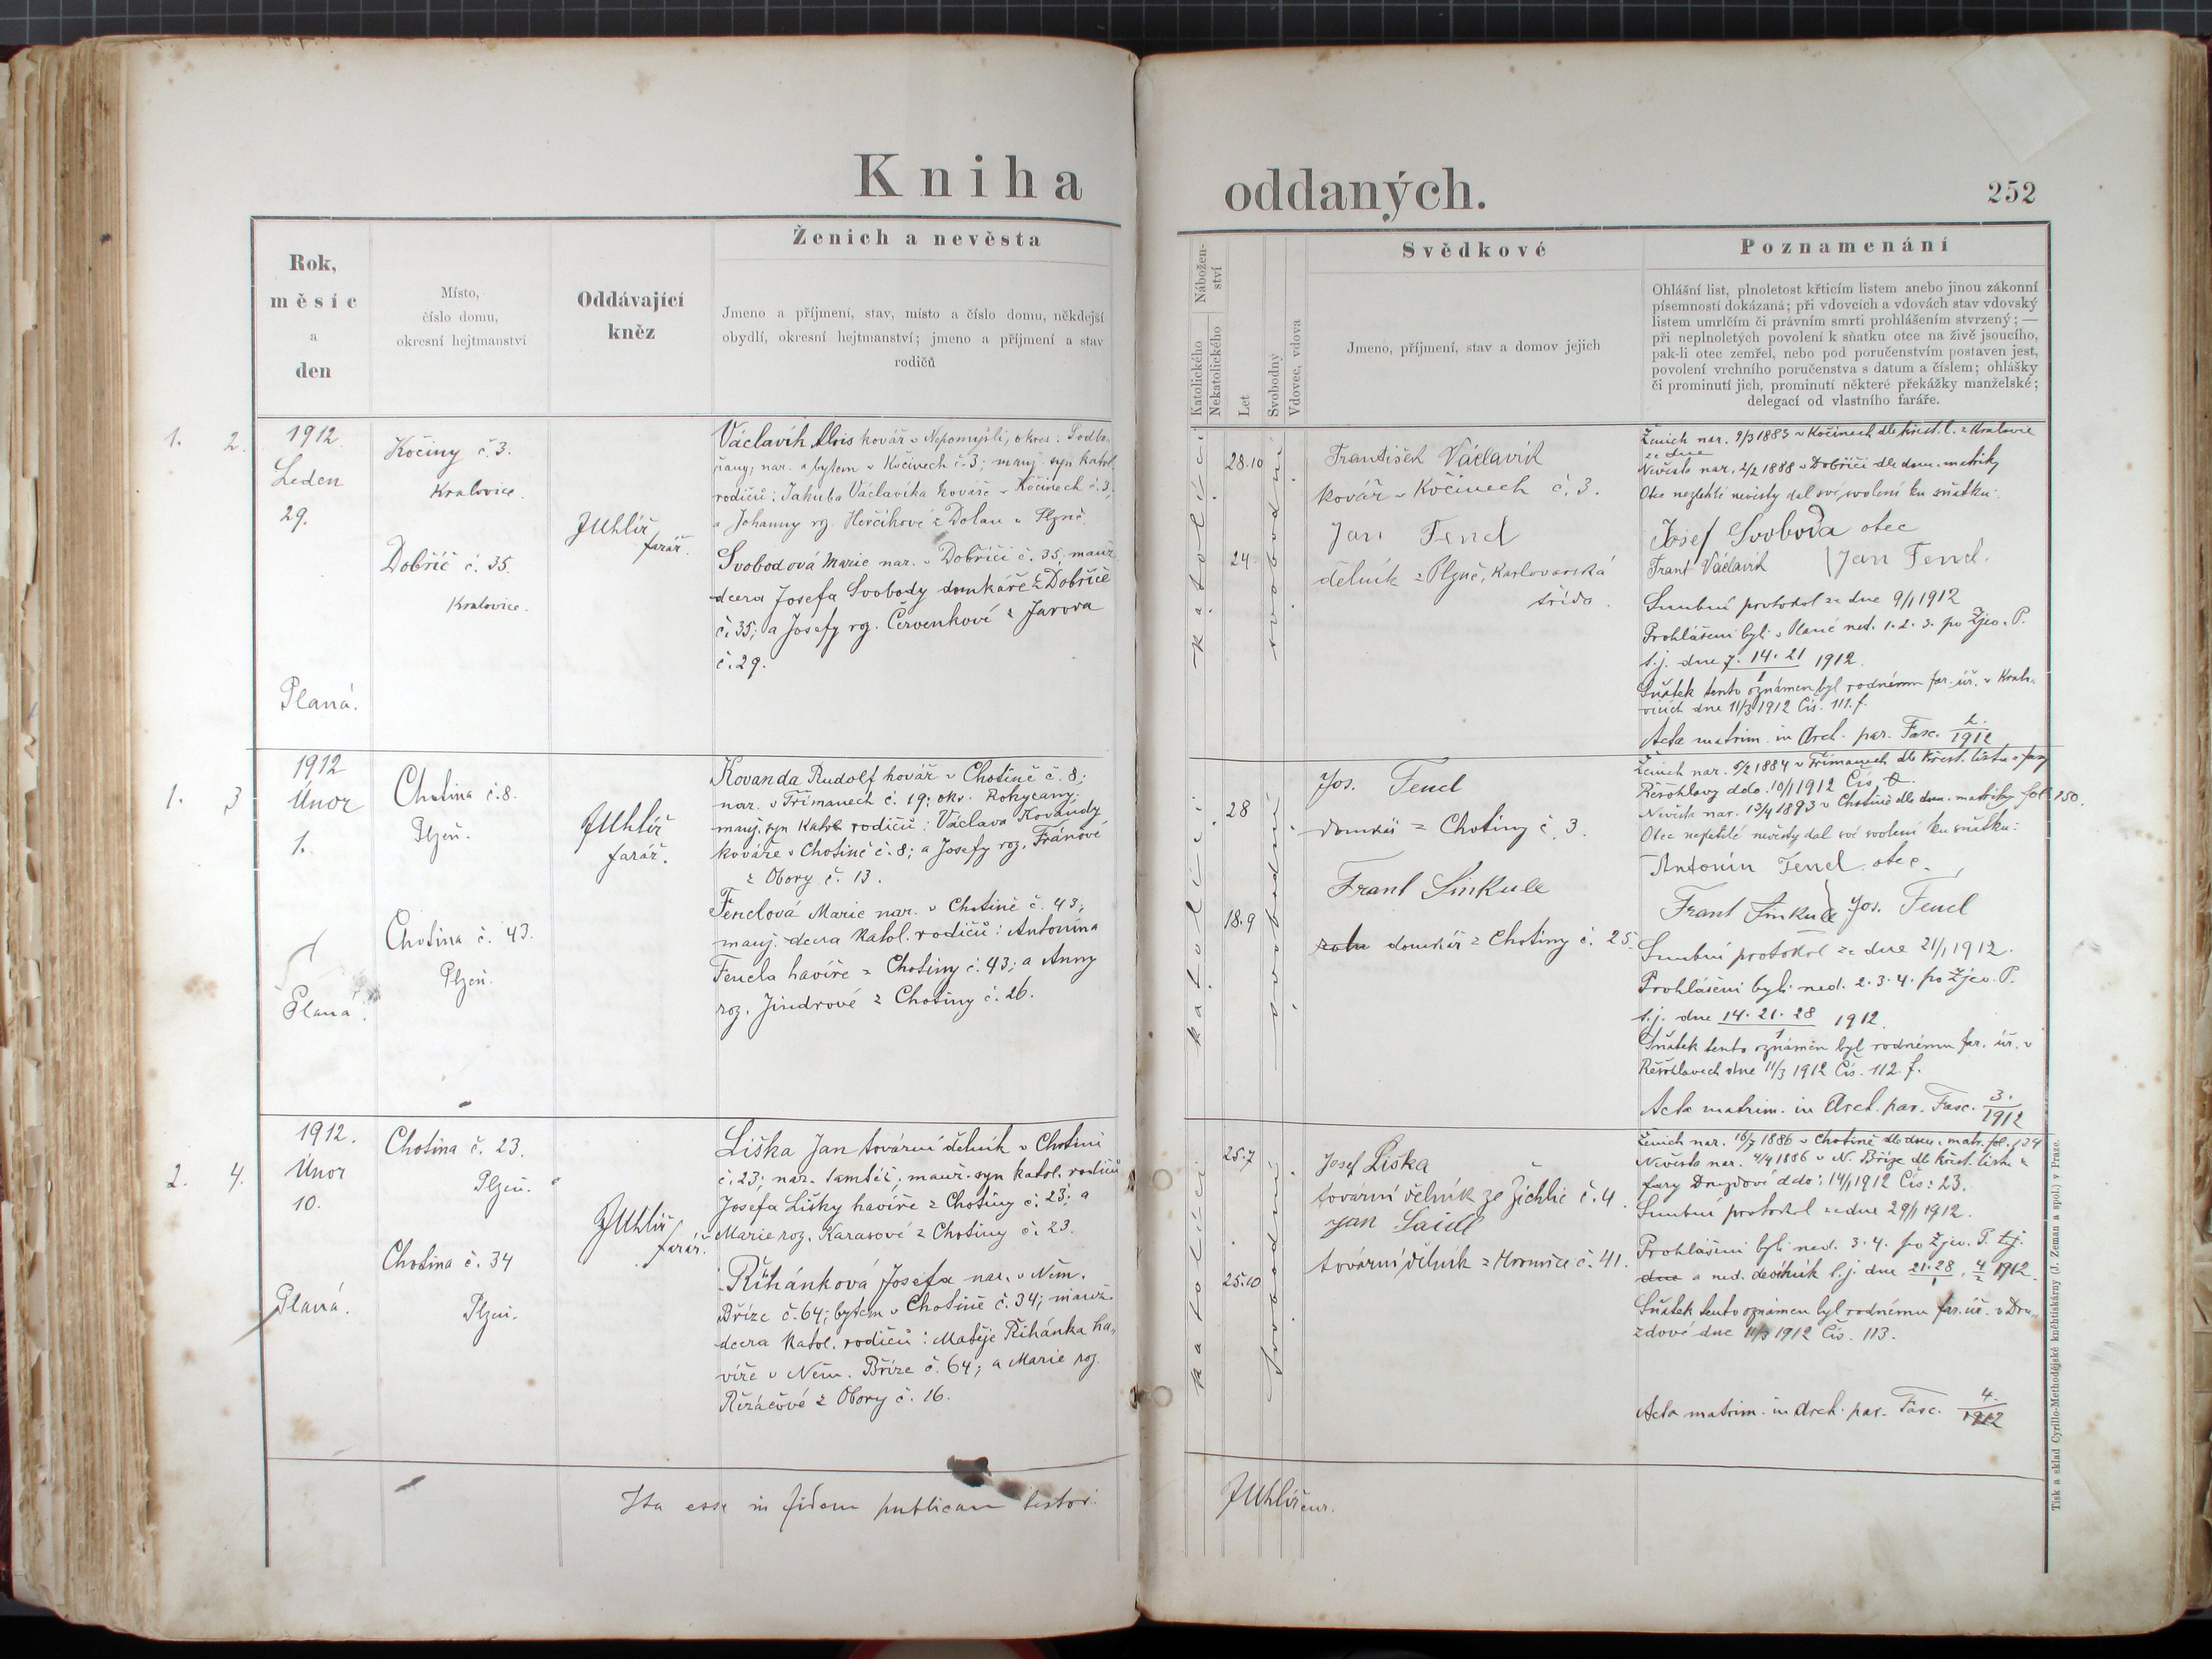 Kniha oddaných.
252
Rok,
měsíc
a
den
Místo,
číslo domu,
okresní hejtmanství
Oddávající
kněz
Ženich a nevěsta
Jmeno a příjmení, stav, místo a číslo domu, někdejší
obydlí, okresní hejtmanství; jmeno a příjmení a stav
rodičů
Nábožen-
ství
Katolického
Nekatolického
Let
Svobodný
Vdovec, vdova
Svědkové
Jmeno, příjmení, stav a domov jejich
Poznamenání
Ohlášní list, plnoletost křticím listem anebo jinou zákonní
písemností dokázaná; při vdovcích a vdovách stav vdovský
listem umrlčím či právním smrti prohlášením stvrzený; —
při neplnoletých povolení k sňatku otce na živě jsoucího,
pak-li otec zemřel, nebo pod poručenstvím postaven jest,
povolení vrchního poručenstva s datum a číslem; ohlášky
či prominutí jich, prominutí některé překážky manželské;
delegací od vlastního faráře.
1. 2.
1912.
Leden
29.
Planá.
Kočiny č. 3.
Kralovice.
Dobříč č. 35.
Kralovice.
JUhlíř
farář.
Václavík Alois kovář v Nepomyšli, okres: Podbo-
řany, nar. a bytem v Kočinech č. 3; manž. syn katol.
rodičů: Jakuba Václavíka kováře v Kočinech č. 3,
a Johanny rz. Herčíkové z Dolan u Plzně.
Svobodová Marie nar. v Dobříči č. 35; manž.
dcera Josefa Svobody domkáře z Dobříče
č. 35; a Josefy rz. Červenkové z Jarova
č. 29.
katolíci
28.10
24
svobodní
František Václavík
kovář v Kočinech č. 3.
Jan Fencl
dělník z Plzně, Karlovarská
třída.
Ženich nar. 9/3 1883 v Kočinech dle křest. l. z Kralovic
ze dne
Nevěsta nar. 2/2 1888 v Dobříči dle dom. matriky
Otec nezletilé nevěsty dal své svolení ku sňatku:
Josef Svoboda otec
Frant Václavík Jan Fencl.
Snubní protokol ze dne 9/1 1912
Prohlášeni byli v Plané ned. 1. 2. 3. po Zjev. P.
t. j. dne 7. 14. 21 1912.
1
Sňatek tento oznámen byl rodnému far. úř. v Kralo-
vicích dne 11/3 1912 Čís. 111. f.
Acta matrim. in Arch. par. Fasc. 2./1912
1. 3
1912
Únor
1.
Planá.
Chotina č. 8.
Plzeň.
Chotina č. 43.
Plzeň.
JUhlíř
farář.
Kovanda Rudolf kovář v Chotině č. 8;
nar. v Třímanech č. 19; okr. Rokycany;
manž. syn katol. rodičů: Václava Kovandy
kováře v Chotině č. 8; a Josefy roz. Fránové
z Obory č. 13.
Fenclová Marie nar. v Chotině č. 43;
manž. dcera katol. rodičů: Antonína
Fencla havíře z Chotiny č. 43; a Anny
roz. Jindrové z Chotiny č. 26.
katolíci
28
18.9
svobodní
Jos. Fencl
domkář z Chotiny č. 3.
Frant Sinkule
domkář z Chotiny č. 25.
Ženich nar. 5/2 1884 v Třímanech dle křest. listu z fary
Řešohlavy ddo. 10/1 1912 Čís.
Nevěsta nar. 13/4 1893 v Chotině dle dom. matriky fol. 150.
Otec nezletilé nevěsty dal své svolení ku sňatku:
Antonín Fencl otec.
Frant Sinkule Jos. Fencl
Snubní protokol ze dne 21/1 1912.
Prohlášeni byli ned. 2. 3. 4. po Zjev. P.
t. j. dne 14. 21. 28 1912.
1
Sňatek tento oznámen byl rodnému far. úř. v
Řešohlavech dne 11/3 1912 Čís. 112. f.
Acta matrim. in Arch. par. Fasc. 3./1912
2. 4.
1912.
Únor
10.
Planá.
Chotina č. 23.
Plzeň.
Chotina č. 34
Plzeň.
JUhlíř
farář.
Liška Jan tovární dělník v Chotině
č. 23; nar. tamtéž; manž. syn katol. rodičů
Josefa Lišky havíře z Chotiny č. 23; a
Marie roz. Karasové z Chotiny č. 23.
Řihánková Josefa nar. v Něm.
Bříze č. 64; bytem v Chotině č. 34; manž.
dcera katol. rodičů: Matěje Řihánka ha-
víře v Něm. Bříze č. 64; a Marie roz.
Řezáčové z Obory č. 16.
katolíci
25.7
25.10
svobodní
Josef Liška
tovární dělník ze Žichlic č. 4.
Jan Saidl
tovární dělník z Hromnice č. 41.
Ženich nar. 16/7 1886 v Chotině dle dom. matr. fol. 134
Nevěsta nar. 4/4 1886 v N. Bříze dle křest. listu z
fary Druzdové ddo: 14/1 1912 Čís: 23.
Snubní protokol ze dne 29/1 1912.
Prohlášeni byli ned. 3. 4. po Zjev. P. t. j.
dne a ned. devítník t. j. dne 21. 28/1, 4/2 1912.
Sňatek tento oznámen byl rodnému far. úř. v Dru-
zdové dne 11/3 1912 Čís. 113.
Acta matrim. in Arch. par. Fasc. 4./1912
Ita esse in fidem publicam testor:
JUhlíř cur.
Tisk a sklad Cyrillo-Methodějské knihtiskárny (J. Zeman a spol.) v Praze.